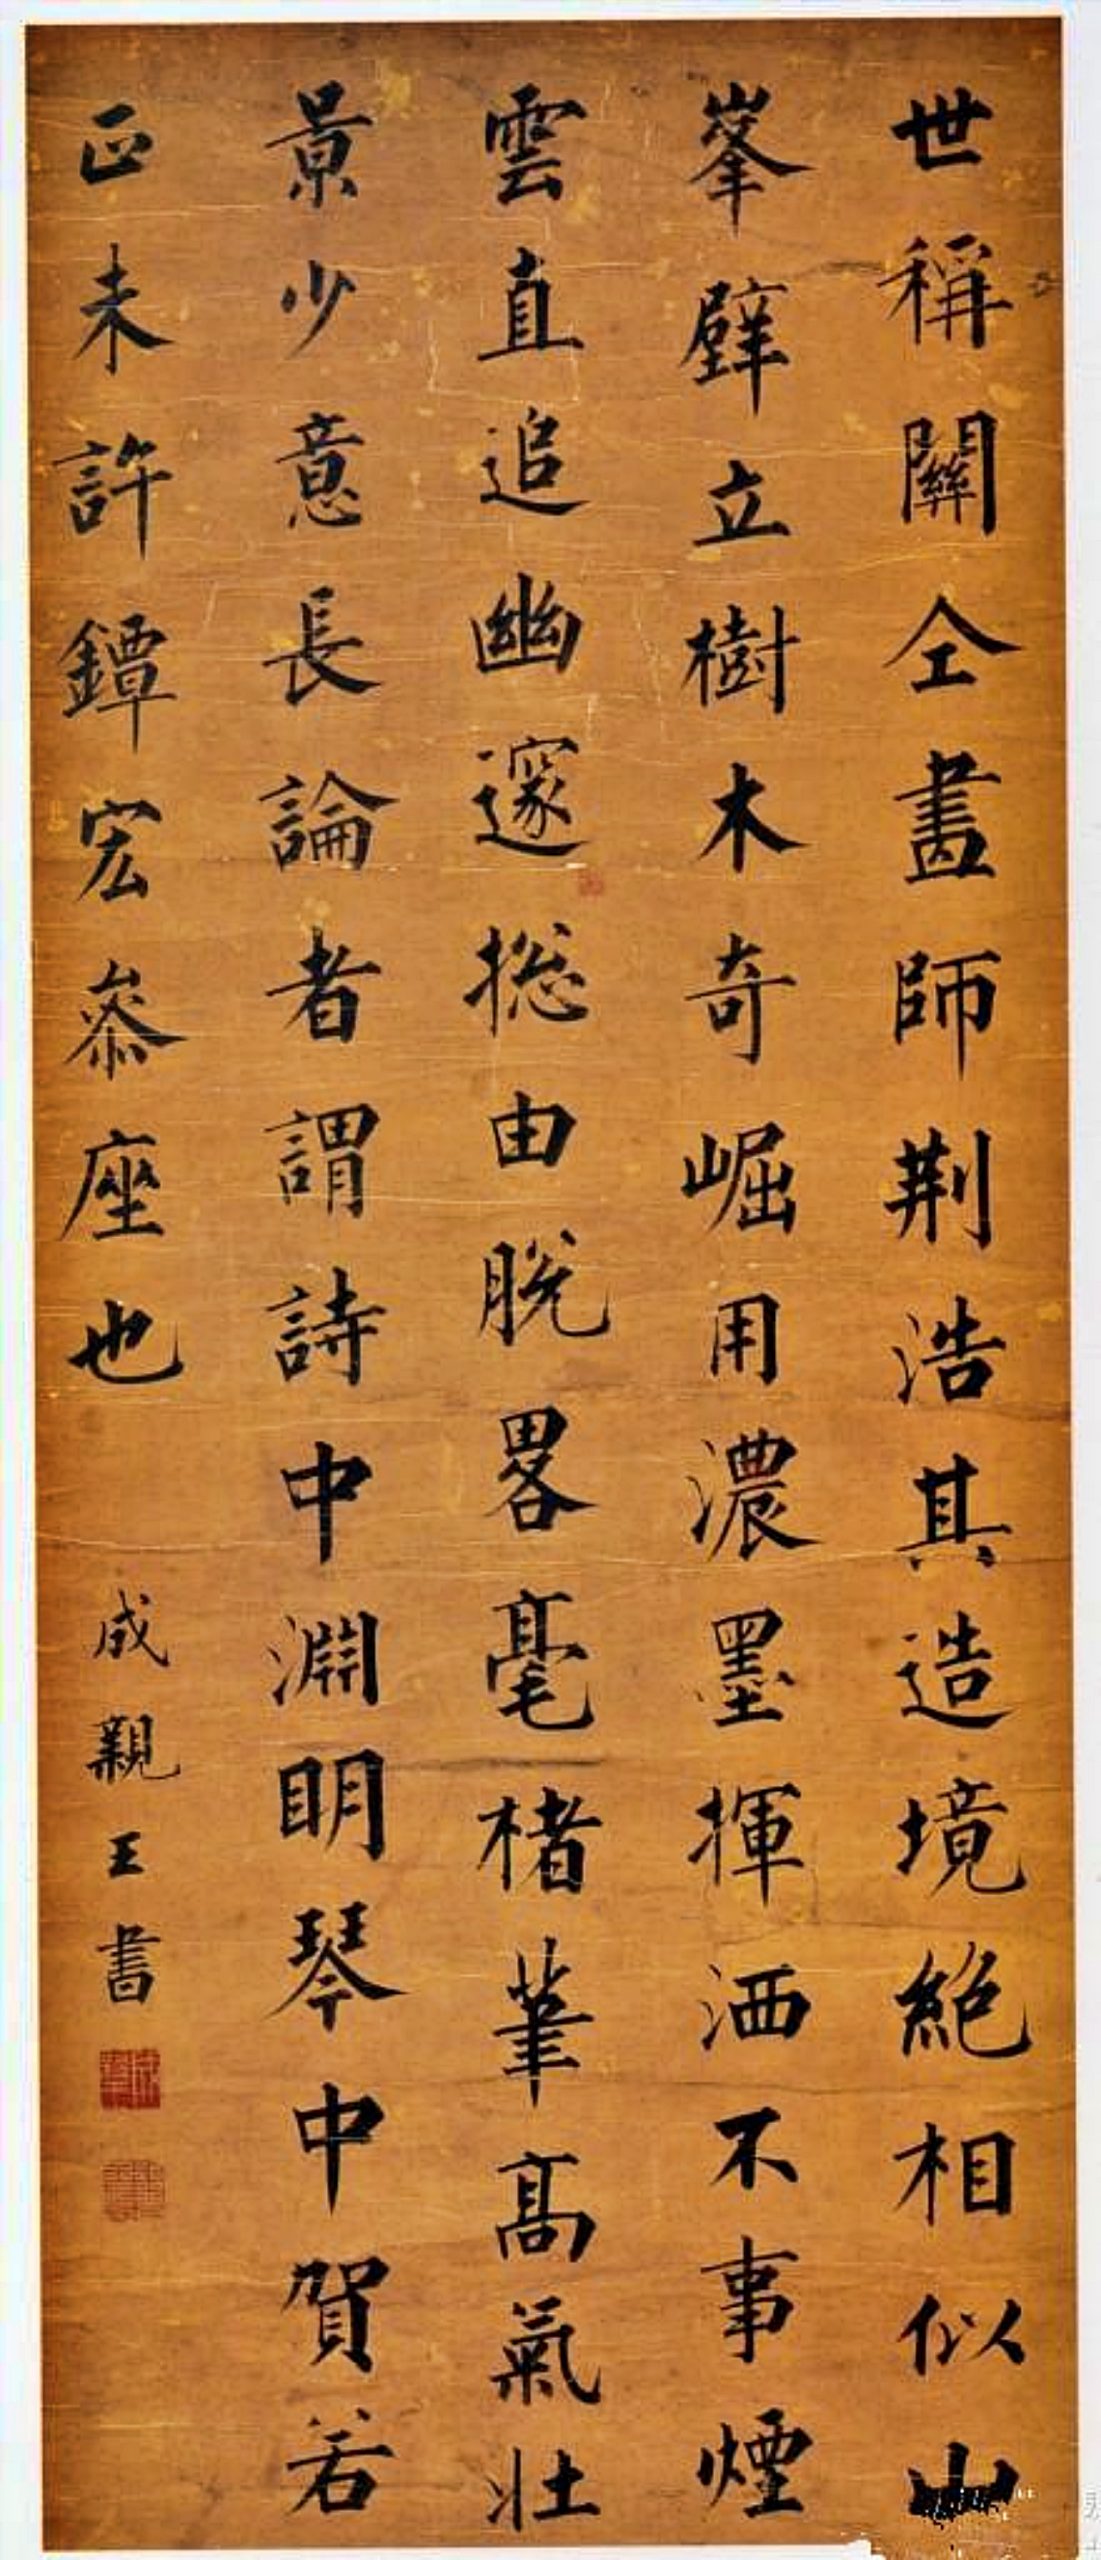 世稱關仝畫師荆浩其造境絕相似山
峯壁立樹木奇崛用濃墨揮洒不事煙
雲直追幽邃捴由脫畧毫楮筆高氣壯
景少意長論者謂詩中淵明琴中賀若
正未許鐔宏叅座也
成親王書